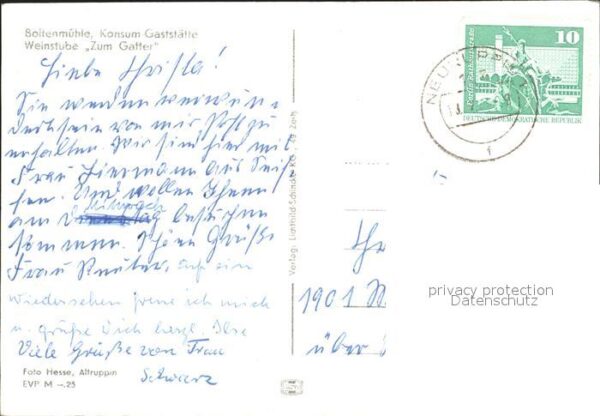 Boltenmühle, Konsum-Gaststätte
Weinstube „Zum Gatter"
Liebe Christa!
Sie werden verwun-
dert sein von mir Post zu
erhalten. Wir sind hier mit
Frau Hiermann aus Seif-
fen. Und wollen Ihnen
am Mittwoch besuchen
kommen. Schöne Grüße
Frau Reuter. Auf ein
Wiedersehen freue ich mich
u. grüße Dich herzl. Ilse
Viele Grüße von Frau
Schwarz
Foto Hesse, Altruppin
EVP M -.25
Verlag:
10
Berlin, Rathausstraße
DEUTSCHE DEMOKRATISCHE REPUBLIK
1901
über
privacy protection
Datenschutz